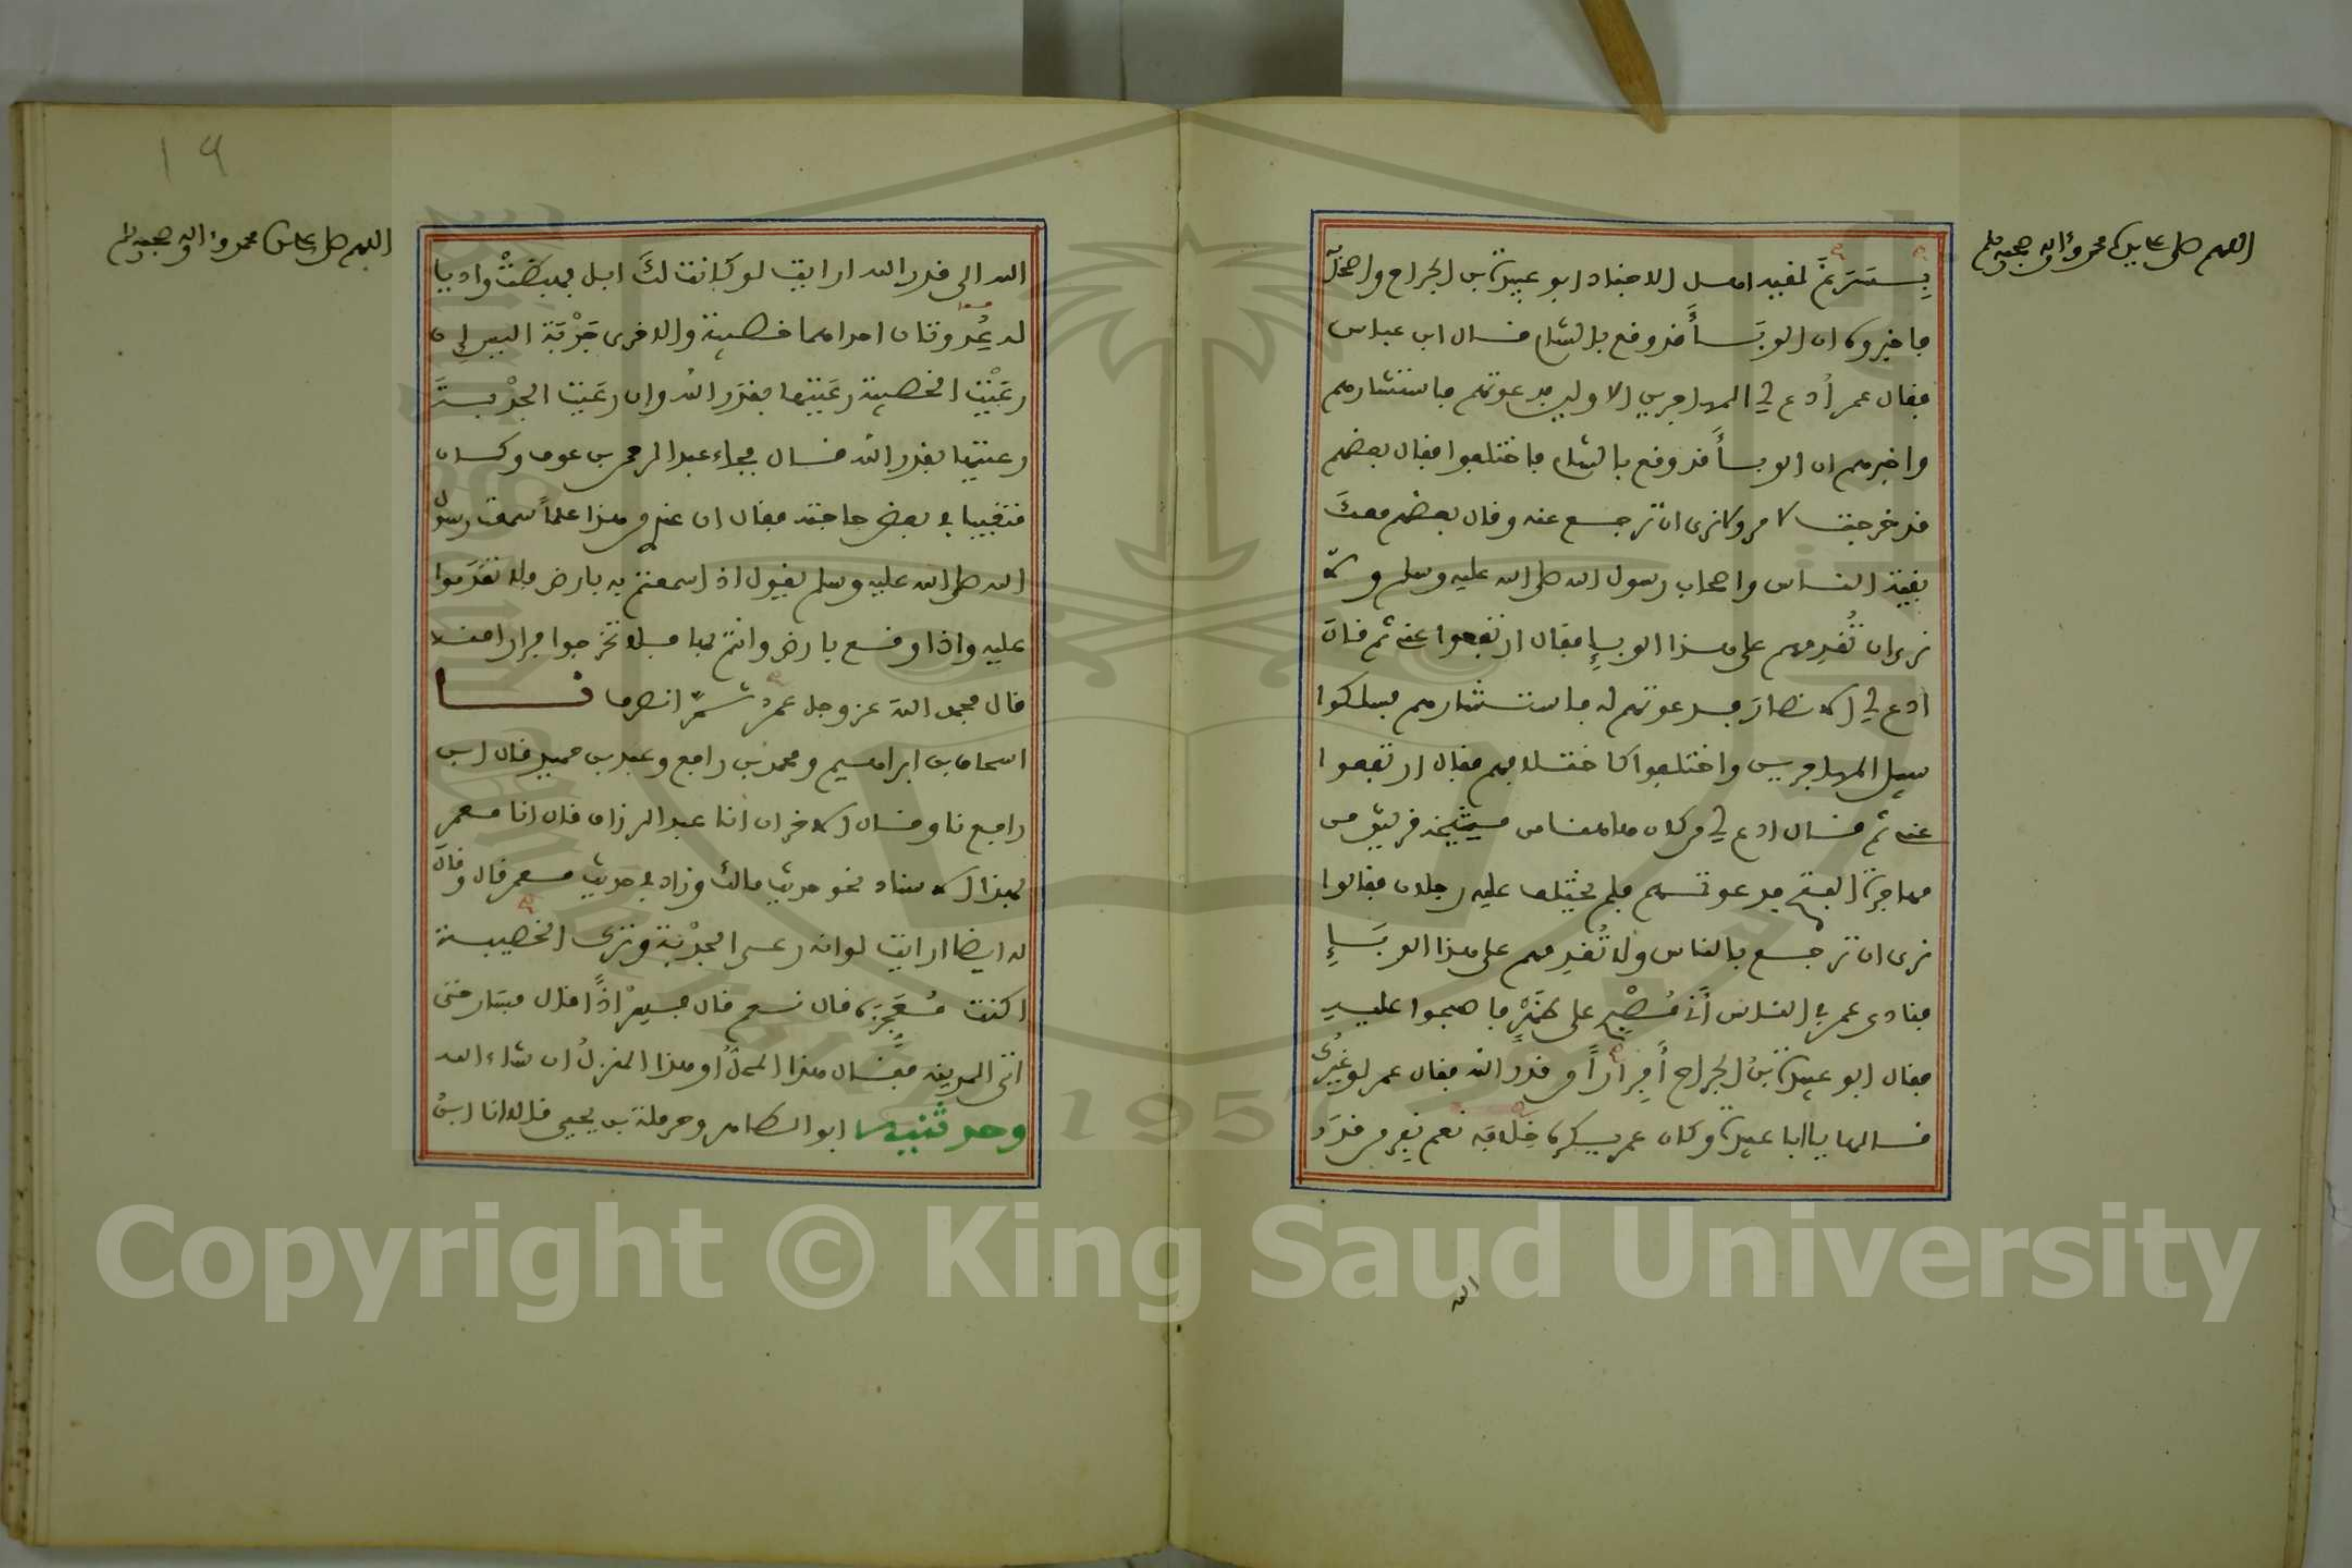 اللهم صل على سيدنا محمد وآله وصحبه وسلم
بِسَرْغَ لقيه اهل الاجناد ابو عبيدة بن الجراح واصحابه
فاخبروه ان الوبَأَ قد وقع بالشام قال ابن عباس
فقال عمر اُدع لي المهاجرين الاولين فدعوتهم فاستشارهم
واخبرهم ان الوبأَ قد وقع بالشام فاختلفوا فقال بعضهم
قد خرجت لامر ولا نرى ان ترجع عنه وقال بعضهم معكَ
بقية الناس واصحاب رسول الله صلى الله عليه وسلم ولا
نرى ان تُقدِمهم على هذا الوبإِ فقال ارتفعوا عني ثم قال
ادع لي الانصار فدعوتهم له فاستشارهم فسلكوا
سبيل المهاجرين واختلفوا كاختلافهم فقال ارتفعوا
عني ثم قال ادع لي من كان هاهنا من مشيخة قريش من
مهاجرة الفتح فدعوتهم فلم يختلف عليه رجلان فقالوا
نرى ان ترجع بالناس ولا تُقدِمهم على هذا الوبَإِ
فنادى عمر في الناس أَني مُصْبِح على ظَهْرٍ فاصبحوا عليه
فقال ابو عبيدة بنُ الجراح أَفِرَاراً من قدر الله فقال عمر لو غيرُك
قالها يا ابا عبيدة وكان عمر يكره خِلَافَه نعم نفِر من قدَر
الله
19
اللهم صل على سيدنا محمد وآله وصحبه وسلم
الله الى قدر الله ارايت لو كانت لكَ ابل فهبطتْ واديا
له عُدوتان احداهما خصبة والاخرى جَدْبَة اليس إِن
رعَيْتَ الخصبة رعَيتها بقدَر الله وان رعَيت الجَدْبَةَ
رعيتها بقدر الله قال فجاء عبد الرحمن بن عوف وكان
متغيبا في بعض حاجته فقال ان عندي من هذا علماً سمعت رسول
الله صلى الله عليه وسلم يقول اذا سمعتم به بارض فلا تقدَموا
عليه واذا وقع بارض وانتم بها فلا تخرجوا فرارا منه
قال فحمد اللهَ عز وجل عمرُ ثمَّ انصرف نا
اسحاق بن ابراهيم ومحمد بن رافع وعبد بن حميد قال ابن
رافع نا وقال الاخران انا عبد الرزاق قال انا معمر
بهذا الاسناد نحو حديث مالك وزاد في حديث معمر قال وقال
له ايضا ارايت لو انه رعى الجدْبَة وترك الخصيبة
اكنت مُعَجِّزَه قال نعم قال فسِرْ اذًا قال فسَار حتى
اتى المدينة فقال هذا المحلُّ او هذا المنزلُ ان شاء الله
وحدثنيه ابو الطاهر وحرملة بن يحيى قالا انا ابنُ
Copyright © King Saud University
1957